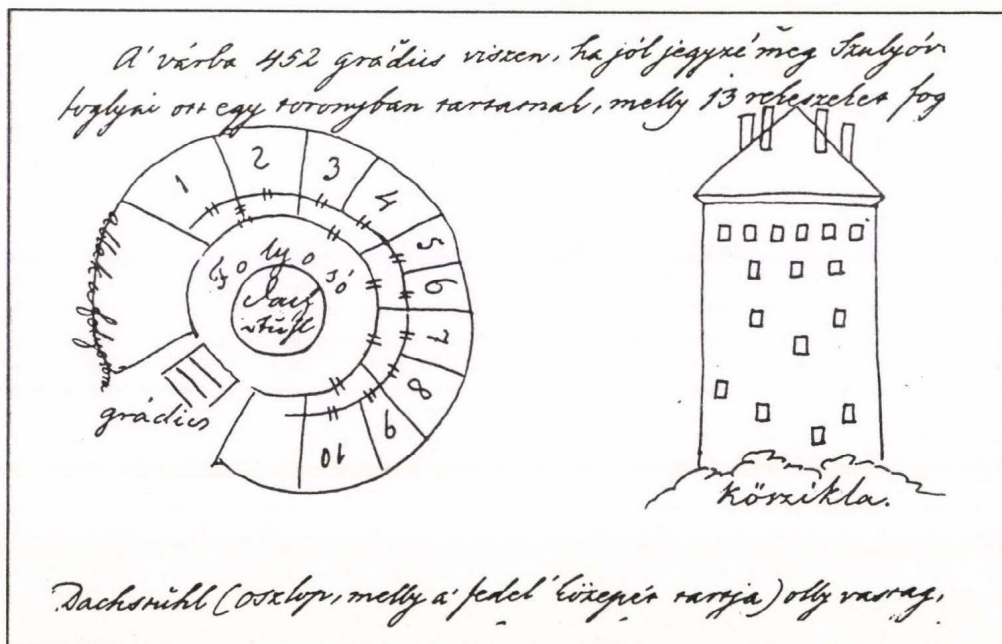 A' várba 452 grádics viszen, ha jól jegyzé meg Szulyóv
foglyai ott egy toronyban tartatnak, melly 13 rekeszeket fog
1
2
3
4
5
6
7
8
9
10
fo ly o só
Dach
stuhl
grádics
Kőszikla.
Dachstuhl (oszlop, melly a' fedel' közepét tartja) olly vastag,